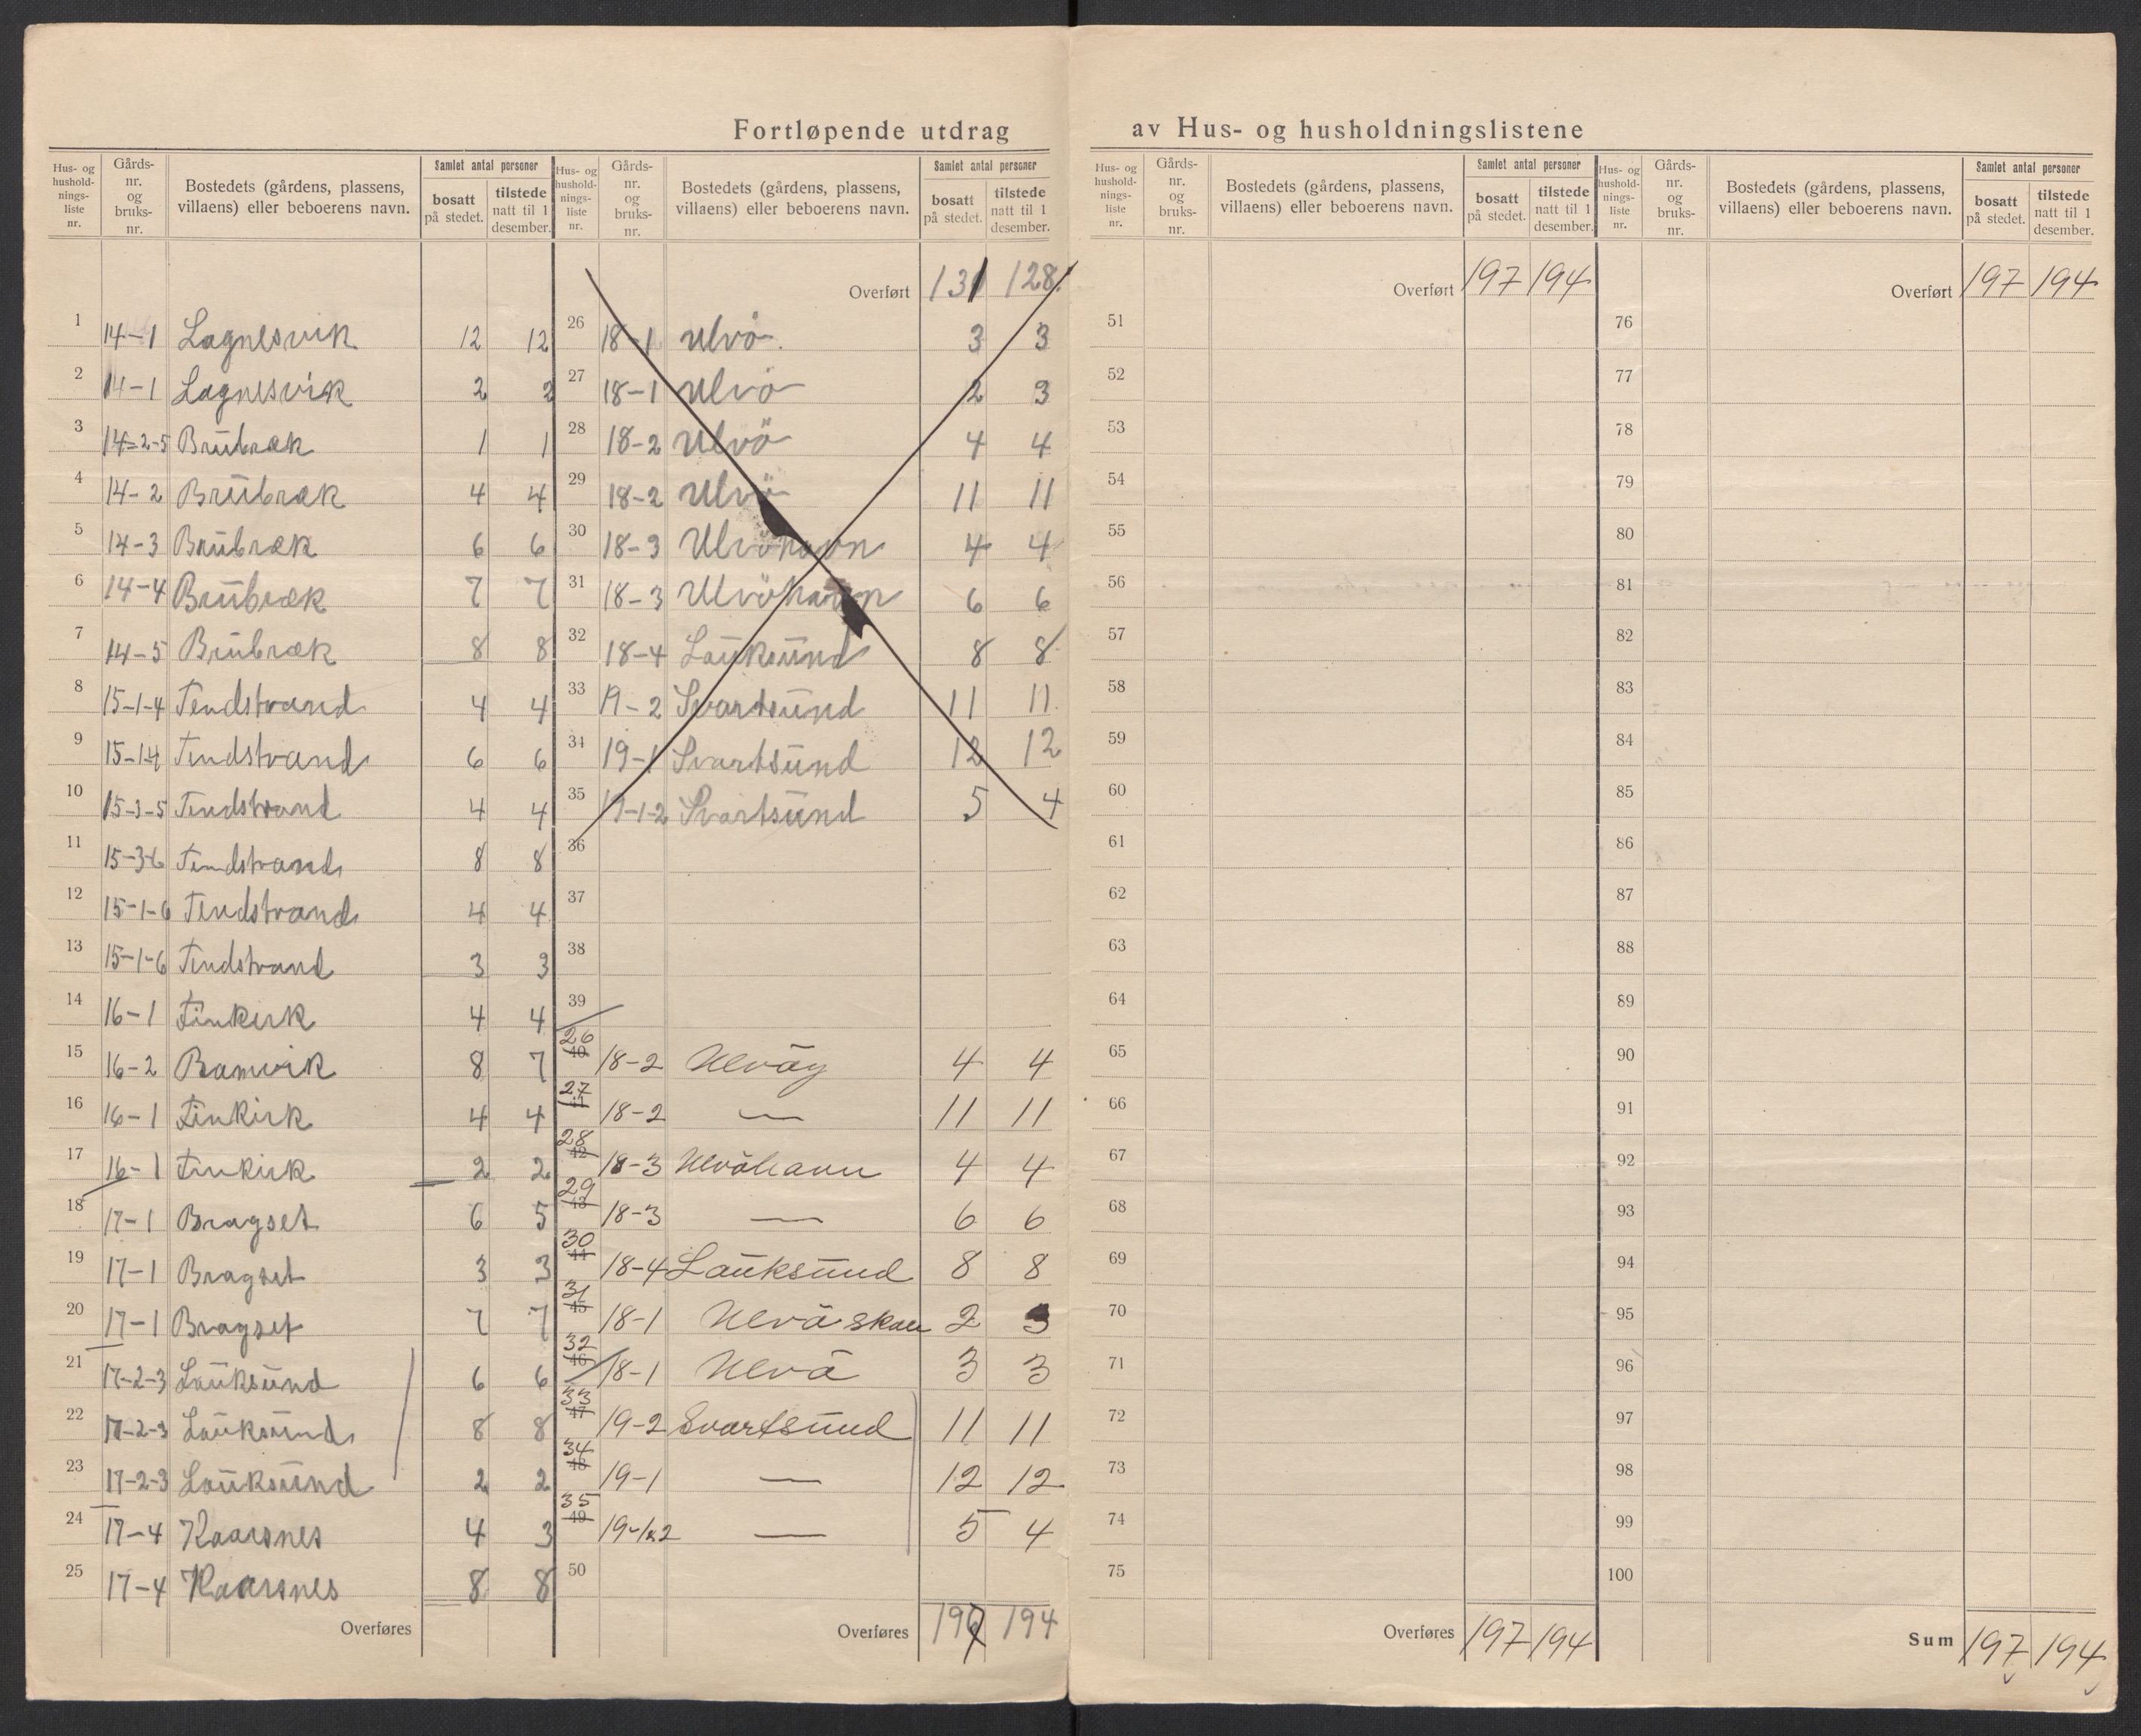 Fortløpende utdrag av Hus- og husholdningslistene
Hus- og hushold-nings-liste nr. Gårds-nr. og bruks-nr. Bostedets (gårdens, plassens, villaens) eller beboerens navn. Samlet antal personer bosatt på stedet. tilstede natt til 1 desember.
1 14-1 Lagnesvik 12 12
2 14-1 Lagnesvik 2 2
3 14-2-5 Brübræk 1 1
4 14-2 Brübræk 4 4
5 14-3 Brübræk 6 6
6 14-4 Brübræk 7 7
7 14-5 Brübræk 8 8
8 15-1-4 Tendstrand 4 4
9 15-1-4 Tindstrand 6 6
10 15-3-5 Tindstrand 4 4
11 15-3-6 Tindstrand 8 8
12 15-1-6 Tindstrand 4 4
13 15-1-6 Tindstrand 3 3
14 16-1 Finkirk 4 4
15 16-2 Bamvik 8 7
16 16-1 Finkirk 4 4
17 16-1 Finkirk 2 2
18 17-1 Bragset 6 5
19 17-1 Bragset 3 3
20 17-1 Bragset 7 7
21 17-2-3 Laüksünd 6 6
22 17-2-3 Laüksünd 8 8
23 17-2-3 Laüksünd 2 2
24 17-4 Kaarsnes 4 3
25 17-4 Kaarsnes 8 8
Overføres
Hus- og hushold-nings-liste nr. Gårds-nr. og bruks-nr. Bostedets (gårdens, plassens, villaens) eller beboerens navn. Samlet antal personer bosatt på stedet. tilstede natt til 1 desember.
Overført 131 128
26 18-1 Ulvö 3 3
27 18-1 Ulvö 2 3
28 18-2 Ulvö 4 4
29 18-2 Ulvö 11 11
30 18-3 Ulvöhavn 4 4
31 18-3 Ulvöhavn 6 6
32 18-4 Laüksünd 8 8
33 19-2 Svartsünd 11 11
34 19-1 Svartsünd 12 12
35 19-1-2 Svartsünd 5 4
36
37
38
39
26 40 18-2 Ulvöy 4 4
27 41 18-2 — 11 11
28 42 18-3 Ulvöhavn 4 4
29 43 18-3 — 6 6
30 44 18-4 Laüksünd 8 8
31 45 18-1 Ulvö skau 2 3
32 46 18-1 Ulvö 3 3
33 47 19-2 Svartsünd 11 11
34 48 19-1 — 12 12
35 49 19-1&2 — 5 4
50
Overføres 197 194
Hus- og hushold-nings-liste nr. Gårds-nr. og bruks-nr. Bostedets (gårdens, plassens, villaens) eller beboerens navn. Samlet antal personer bosatt på stedet. tilstede natt til 1 desember.
Overført 197 194
51
52
53
54
55
56
57
58
59
60
61
62
63
64
65
66
67
68
69
70
71
72
73
74
75
Overføres 197 194
Hus- og hushold-nings-liste nr. Gårds-nr. og bruks-nr. Bostedets (gårdens, plassens, villaens) eller beboerens navn. Samlet antal personer bosatt på stedet. tilstede natt til 1 desember.
Overført 197 194
76
77
78
79
80
81
82
83
84
85
86
87
88
89
90
91
92
93
94
95
96
97
98
99
100
Sum 197 194